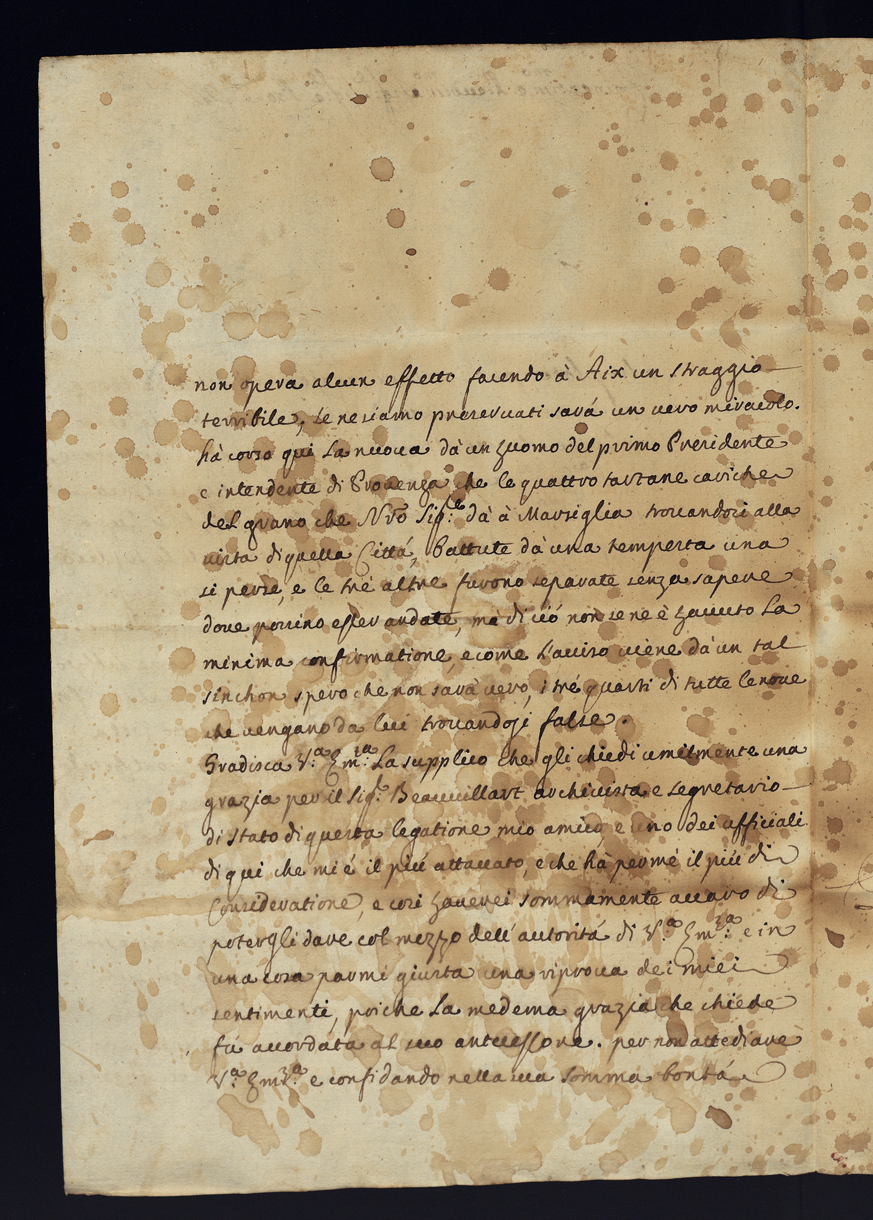 non opera alcun effetto facendo à Aix un straggio
terribile, se ne siamo preservati sará un vero miracolo.
hà corso qui la nuova dà un huomo del primo Presidente
e intendente di Provenza che le quattro tartane cariche
del grano che Nrõ Sigr.e dà à Marsiglia trovandosi alla
vista di quella Cittá, battute dà una tempesta una
si perse, e le tré altre furono separate senza sapere
dove possino esser andate, mà di ció non se ne è havuto la
minima confirmatione, e come l'aviso viene dà un tal
sinchon spero che non sarà vero, i tré quarti di tutte le nove
che vengano da lui trovandosi false.
Gradisca V.ª Em.za La supplico che gli chiedi umilmente una
grazia per il Sig.r Beauvillart archivista e segretario
di stato di questa legatione mio amico, e uno dei ufficiali
di qui che mi é il piú attaccato, e che hà per mé il piú di
Consideratione, e cosi haverei sommamente a caro di
potergli dare col mezzo dell' autoritá di V.ª Em.za e in
una cosa parmi giusta una riprova dei miei
sentimenti, poiche la medema grazia che chiede
fú accordata al suo antecessore. per non attediare
V.ª Em.za e confidando nella sua somma bontá